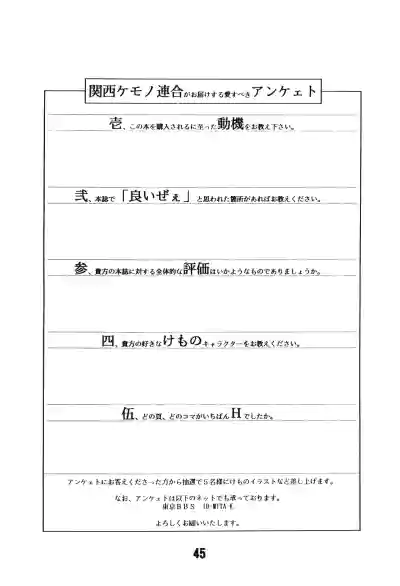 関西ケモノ連合がお届けする愛すべきアンケェト
壱、この本を購入されるに至った動機をお教え下さい。
弐、本誌で「良いぜぇ」と思われた箇所があればお教えください。
参、貴方の本誌に対する全体的な評価はいかようなものでありましょうか。
四、貴方の好きなけものキャラクターをお教えください。
伍、どの頁、どのコマがいちばんHでしたか。
アンケェトにお答えくださった方から抽選で5名様にけものイラストなど差し上げます。
なお、アンケェトは以下のネットでも承っております。
東京BBS ID-MITA-K
よろしくお願いいたします。
45